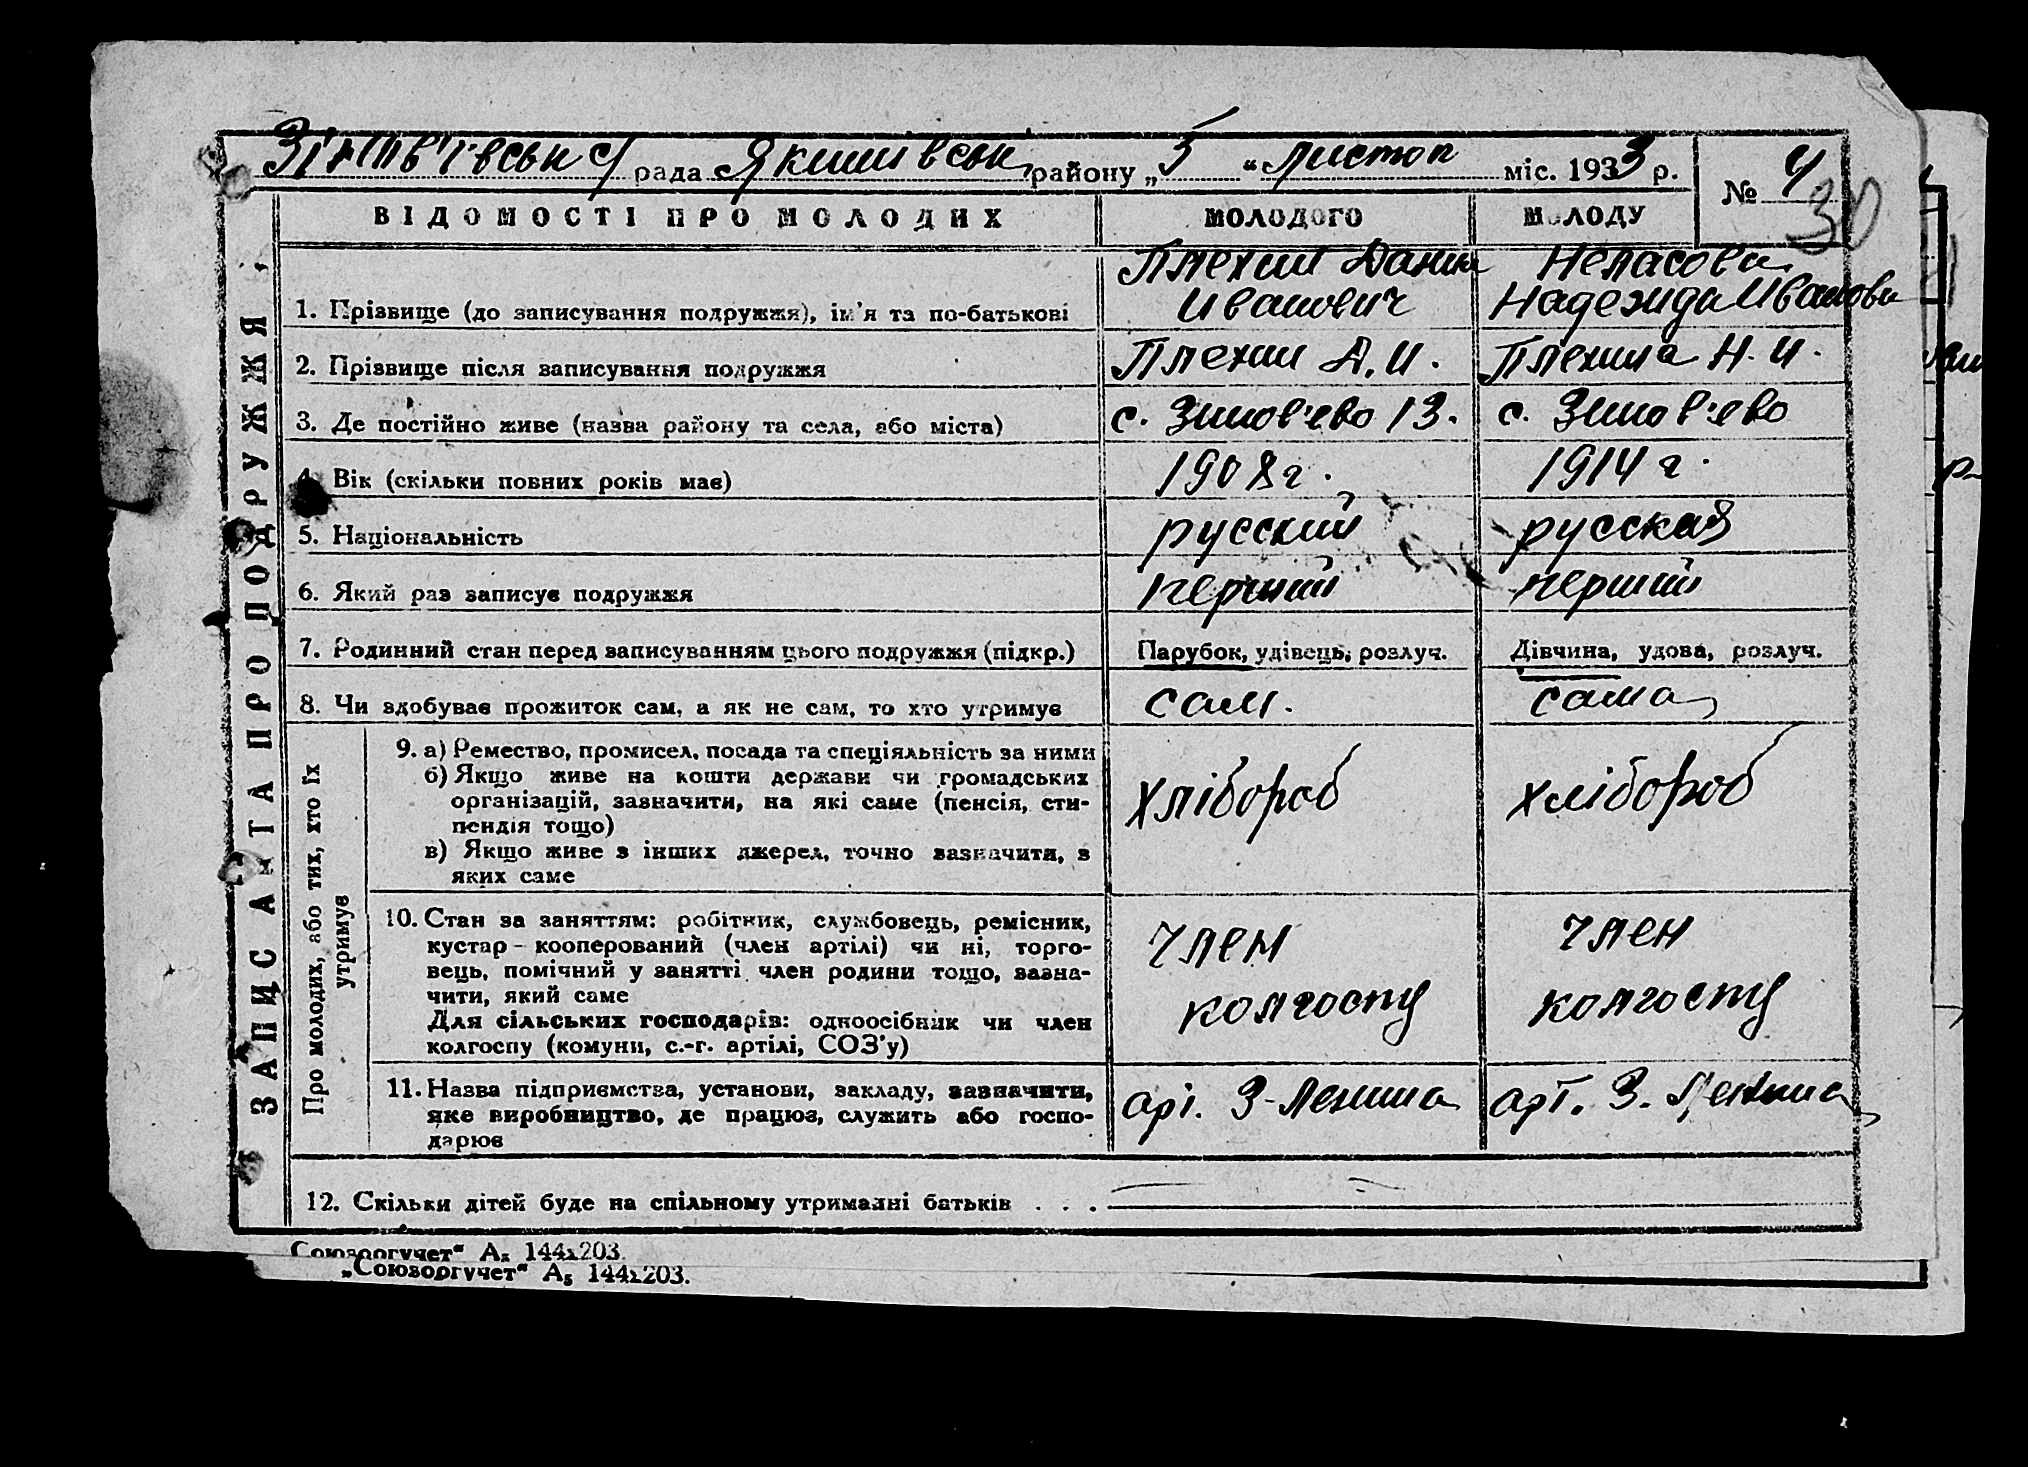 рада Якимівськ району „5“ листоп міс. 1933 р.
№ 4
30
ВІДОМОСТІ ПРО МОЛОДИХ
МОЛОДОГО
МОЛОДУ
ЗАПИС АКТА ПРО ПОДРУЖЖЯ
1. Прізвище (до записування подружжя), ім'я та по-батькові
Плехин Данил
Иванович
Надежда Иванова
2. Прізвище після записування подружжя
Плехин Д. И.
Плехина Н. И.
3. Де постійно живе (назва району та села, або міста)
с. Зинов'ево 13.
с. Зинов'ево
4. Вік (скільки повних років має)
1908 г.
1914 г.
5. Національність
русский
русская
6. Який раз записує подружжя
перший
перший
7. Родинний стан перед записуванням цього подружжя (підкр.)
Парубок, удівець, розлуч.
Дівчина, удова, розлуч.
8. Чи здобуває прожиток сам, а як не сам, то хто утримує
сам.
сама
Про молодих, або тих, хто їх
утримує
9. а) Ремество, промисел, посада та спеціяльність за ними
б) Якщо живе на кошти держави чи громадських
організацій, зазначити, на які саме (пенсія, сти-
пендія тощо)
в) Якщо живе з інших джерел, точно зазначити, з
яких саме
хлібороб
хлібороб
10. Стан за заняттям: робітник, службовець, ремісник,
кустар – кооперований (член артілі) чи ні, торго-
вець, помічний у занятті член родини тощо, зазна-
чити, який саме
Для сільських господарів: одноосібник чи член
колгоспу (комуни, с.-г. артілі, СОЗ'у)
член
колгоспу
член
колгоспу
11. Назва підприємства, установи, закладу, зазначити,
яке виробництво, де працює, служить або госпо-
дарює
арт. З. Ленина
арт. З. Ленина
12. Скільки дітей буде на спільному утриманні батьків . . .
Союзоргучет“ А₅ 144х203.
„Союзоргучет“ А₅ 144х203.